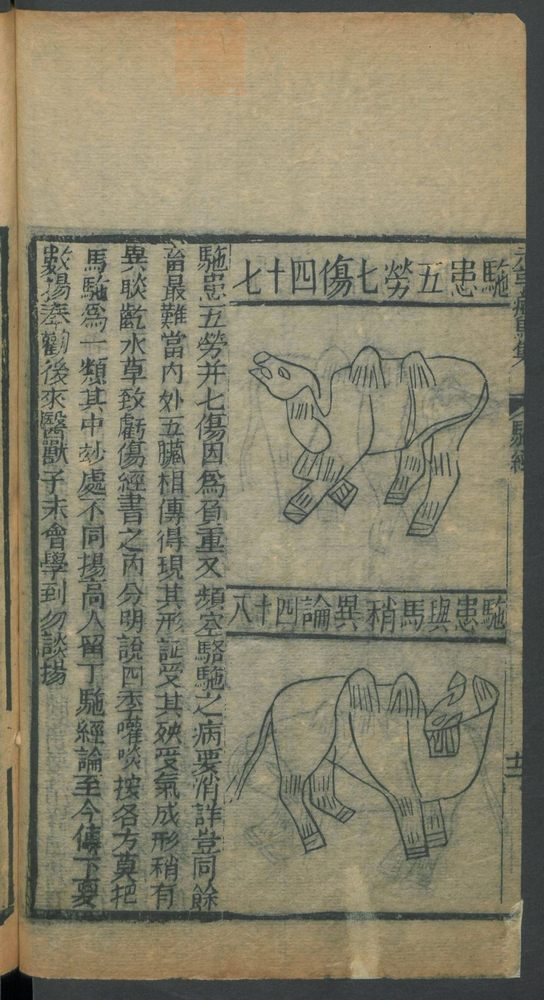 元亨療馬集
駞經
十二
駞患五勞七傷四十七
駞患與馬稍異論四十八
駞患五勞并七傷因爲負重又頻空駱駞之病要消詳豈同餘
畜最難當内外五臟相傳得現其形証受其殃受氣成形稍有
異啖齕水草致虧傷經書之内分明說四季嚾啖按各方莫把
馬駞爲一類其中玅處不同揚高人留丁駞經論至今傳下要
敷揚奉勸後來醫獸子未會學到勿談揚